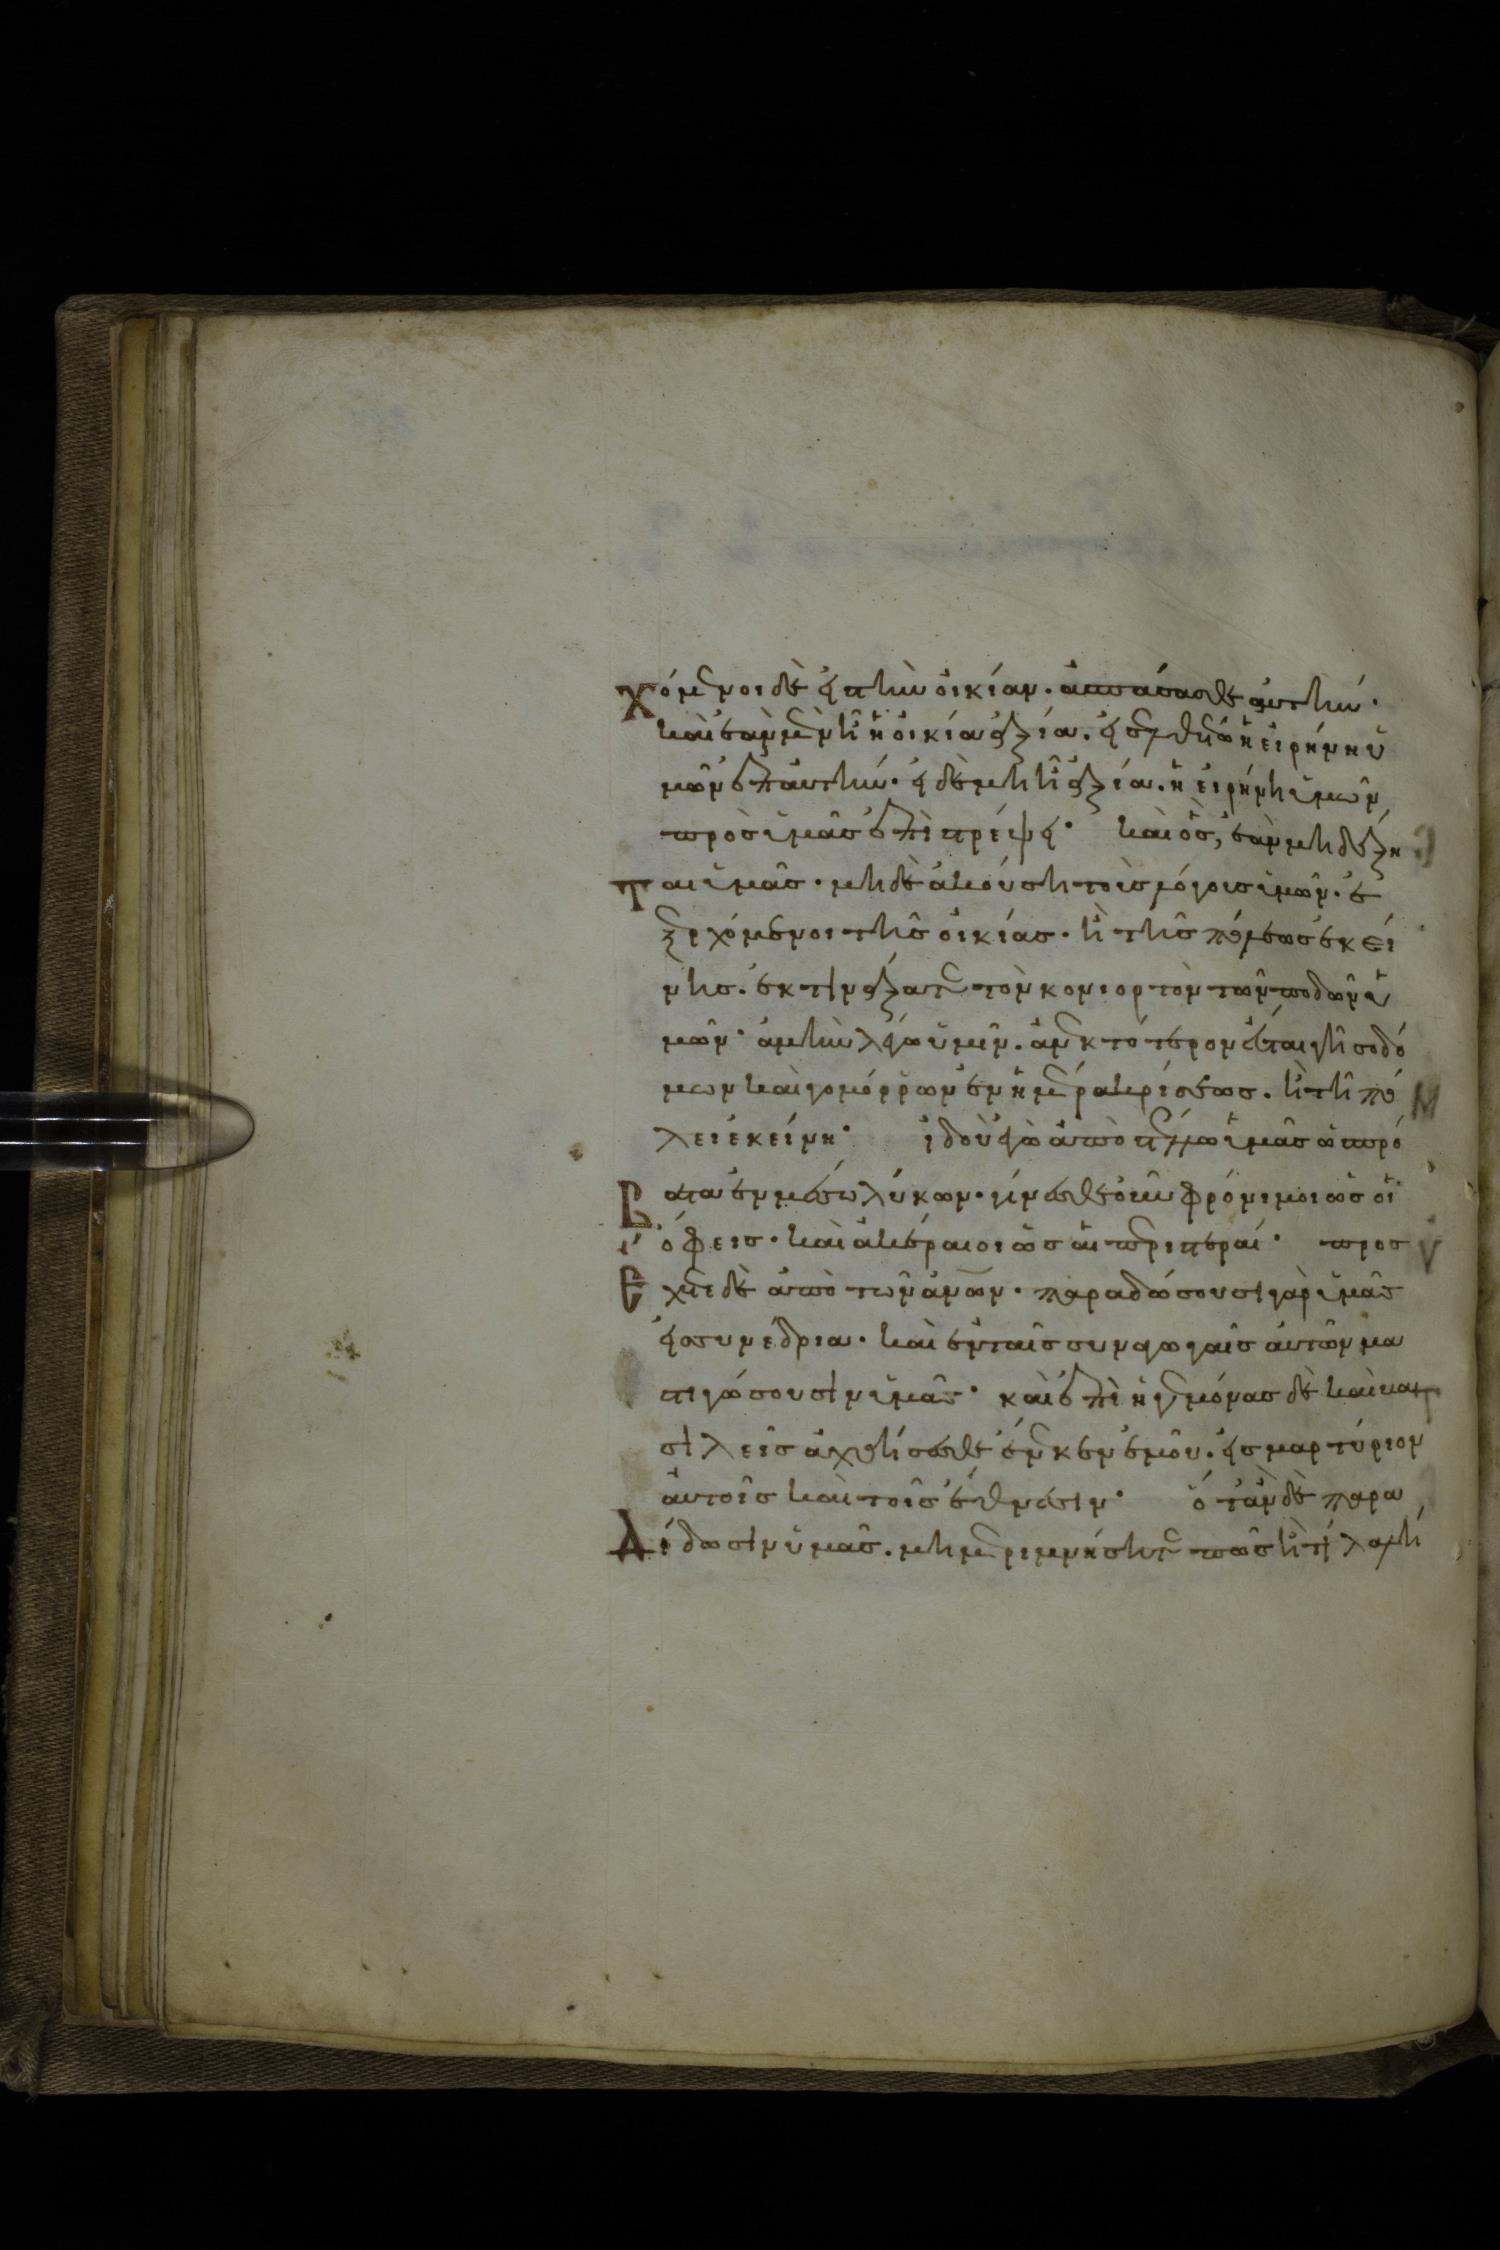 χόμενοι δὲ εἰς τὴν οἰκίαν. ἀσπάσασθε αὐτήν·
καὶ ἐὰν μὲν ἦ ἡ οἰκία ἀξία. εἰσελθέτω ἡ εἰρήνη ὑ
μῶν ἐπ αὐτήν· εἰ δὲ μὴ ἦ ἀξία. ἡ εἰρήνη ὑμῶν
πρὸς ὑμᾶς ἐπιστρέψει· καὶ ὃς, ἐὰν μὴ δέξη
ται ὑμᾶς. μὴ δὲ ἀκούση τοὺς λόγους ὑμῶν. ἐ
ξερχόμενοι τῆς οἰκίας. ἢ τῆς πόλεως ἐκεί
νης. ἐκτινάξατε τὸν κονιορτὸν τῶν ποδῶν ὑ
μῶν· ἀμὴν λέγω ὑμῖν. ἀνεκτότερον ἔσται γῆ σοδό
μων καὶ γομόρρων ἐν ἡμέρα κρίσεως. ἢ τῆ πό
λει ἐκείνη· ἰδοὺ ἐγὼ ἀποστέλλω ὑμᾶς ὡς πρό
βατα ἐν μέσω λύκων. γίνεσθε οὖν φρόνιμοι ὡς οἱ
ὄφεις. καὶ ἀκέραιοι ὡς αἱ περιστεραί· προσ
έχετε δὲ ἀπὸ τῶν ἀνων. παραδώσουσι γὰρ ὑμᾶς
εἰς συνέδρια. καὶ ἐν ταῖς συναγωγαῖς αὐτῶν μα
στιγώσουσιν ὑμᾶς· καὶ ἐπὶ ἡγεμόνας δὲ καὶ βα
σιλεῖς ἀχθήσεσθε ἕνεκεν ἐμοῦ. εἰς μαρτύριον
αὐτοῖς καὶ τοῖς ἔθνεσιν· ὅταν δὲ παρα
διδῶσιν ὑμᾶς. μὴ μεριμνήσητε πῶς ἢ τί λαλή